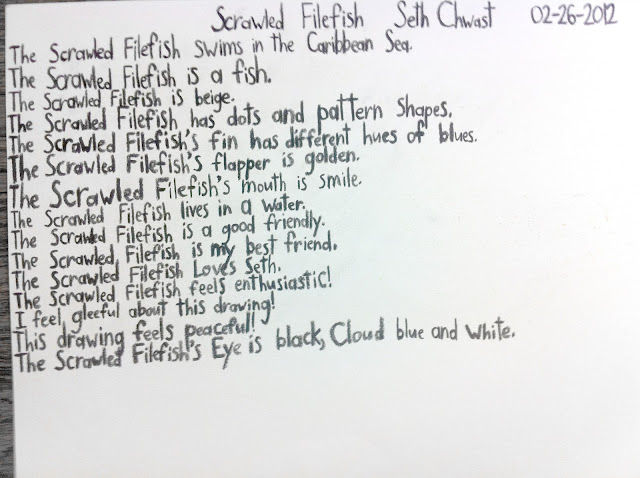 Scrawled Filefish Seth Chwast 02-26-2012
The Scrawled Filefish swims in the Caribbean Sea.
The Scrawled Filefish is a fish.
The Scrawled Filefish is beige.
The Scrawled Filefish has dots and pattern shapes.
The Scrawled Filefish's fin has different hues of blues.
The Scrawled Filefish's flapper is golden.
The Scrawled Filefish's mouth is smile.
The Scrawled Filefish lives in a water.
The Scrawled Filefish is a good friendly.
The Scrawled Filefish is my best friend.
The Scrawled Filefish Loves Seth.
The Scrawled Filefish feels enthusiastic!
I feel gleeful about this drawing!
This drawing feels peaceful!
The Scrawled Filefish's Eye is black, Cloud blue and white.